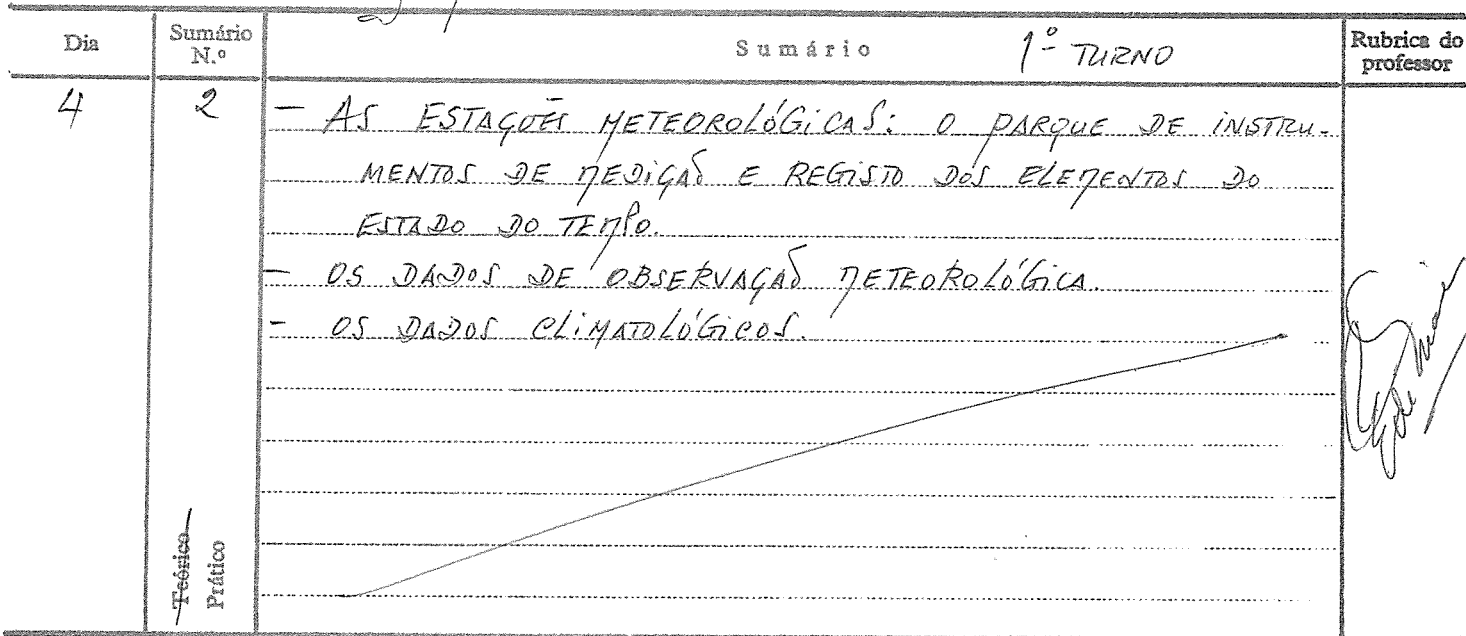 Dia Sumário N.º Sumário 1º TURNO Rubrica do professor
4 2 - AS ESTAÇÕES METEOROLÓGICAS: O PARQUE DE INSTRU-
MENTOS DE MEDIÇÃO E REGISTO DOS ELEMENTOS DO
ESTADO DO TEMPO.
- OS DADOS DE OBSERVAÇÃO METEOROLÓGICA.
- OS DADOS CLIMATOLÓGICOS.
Teórico
Prático